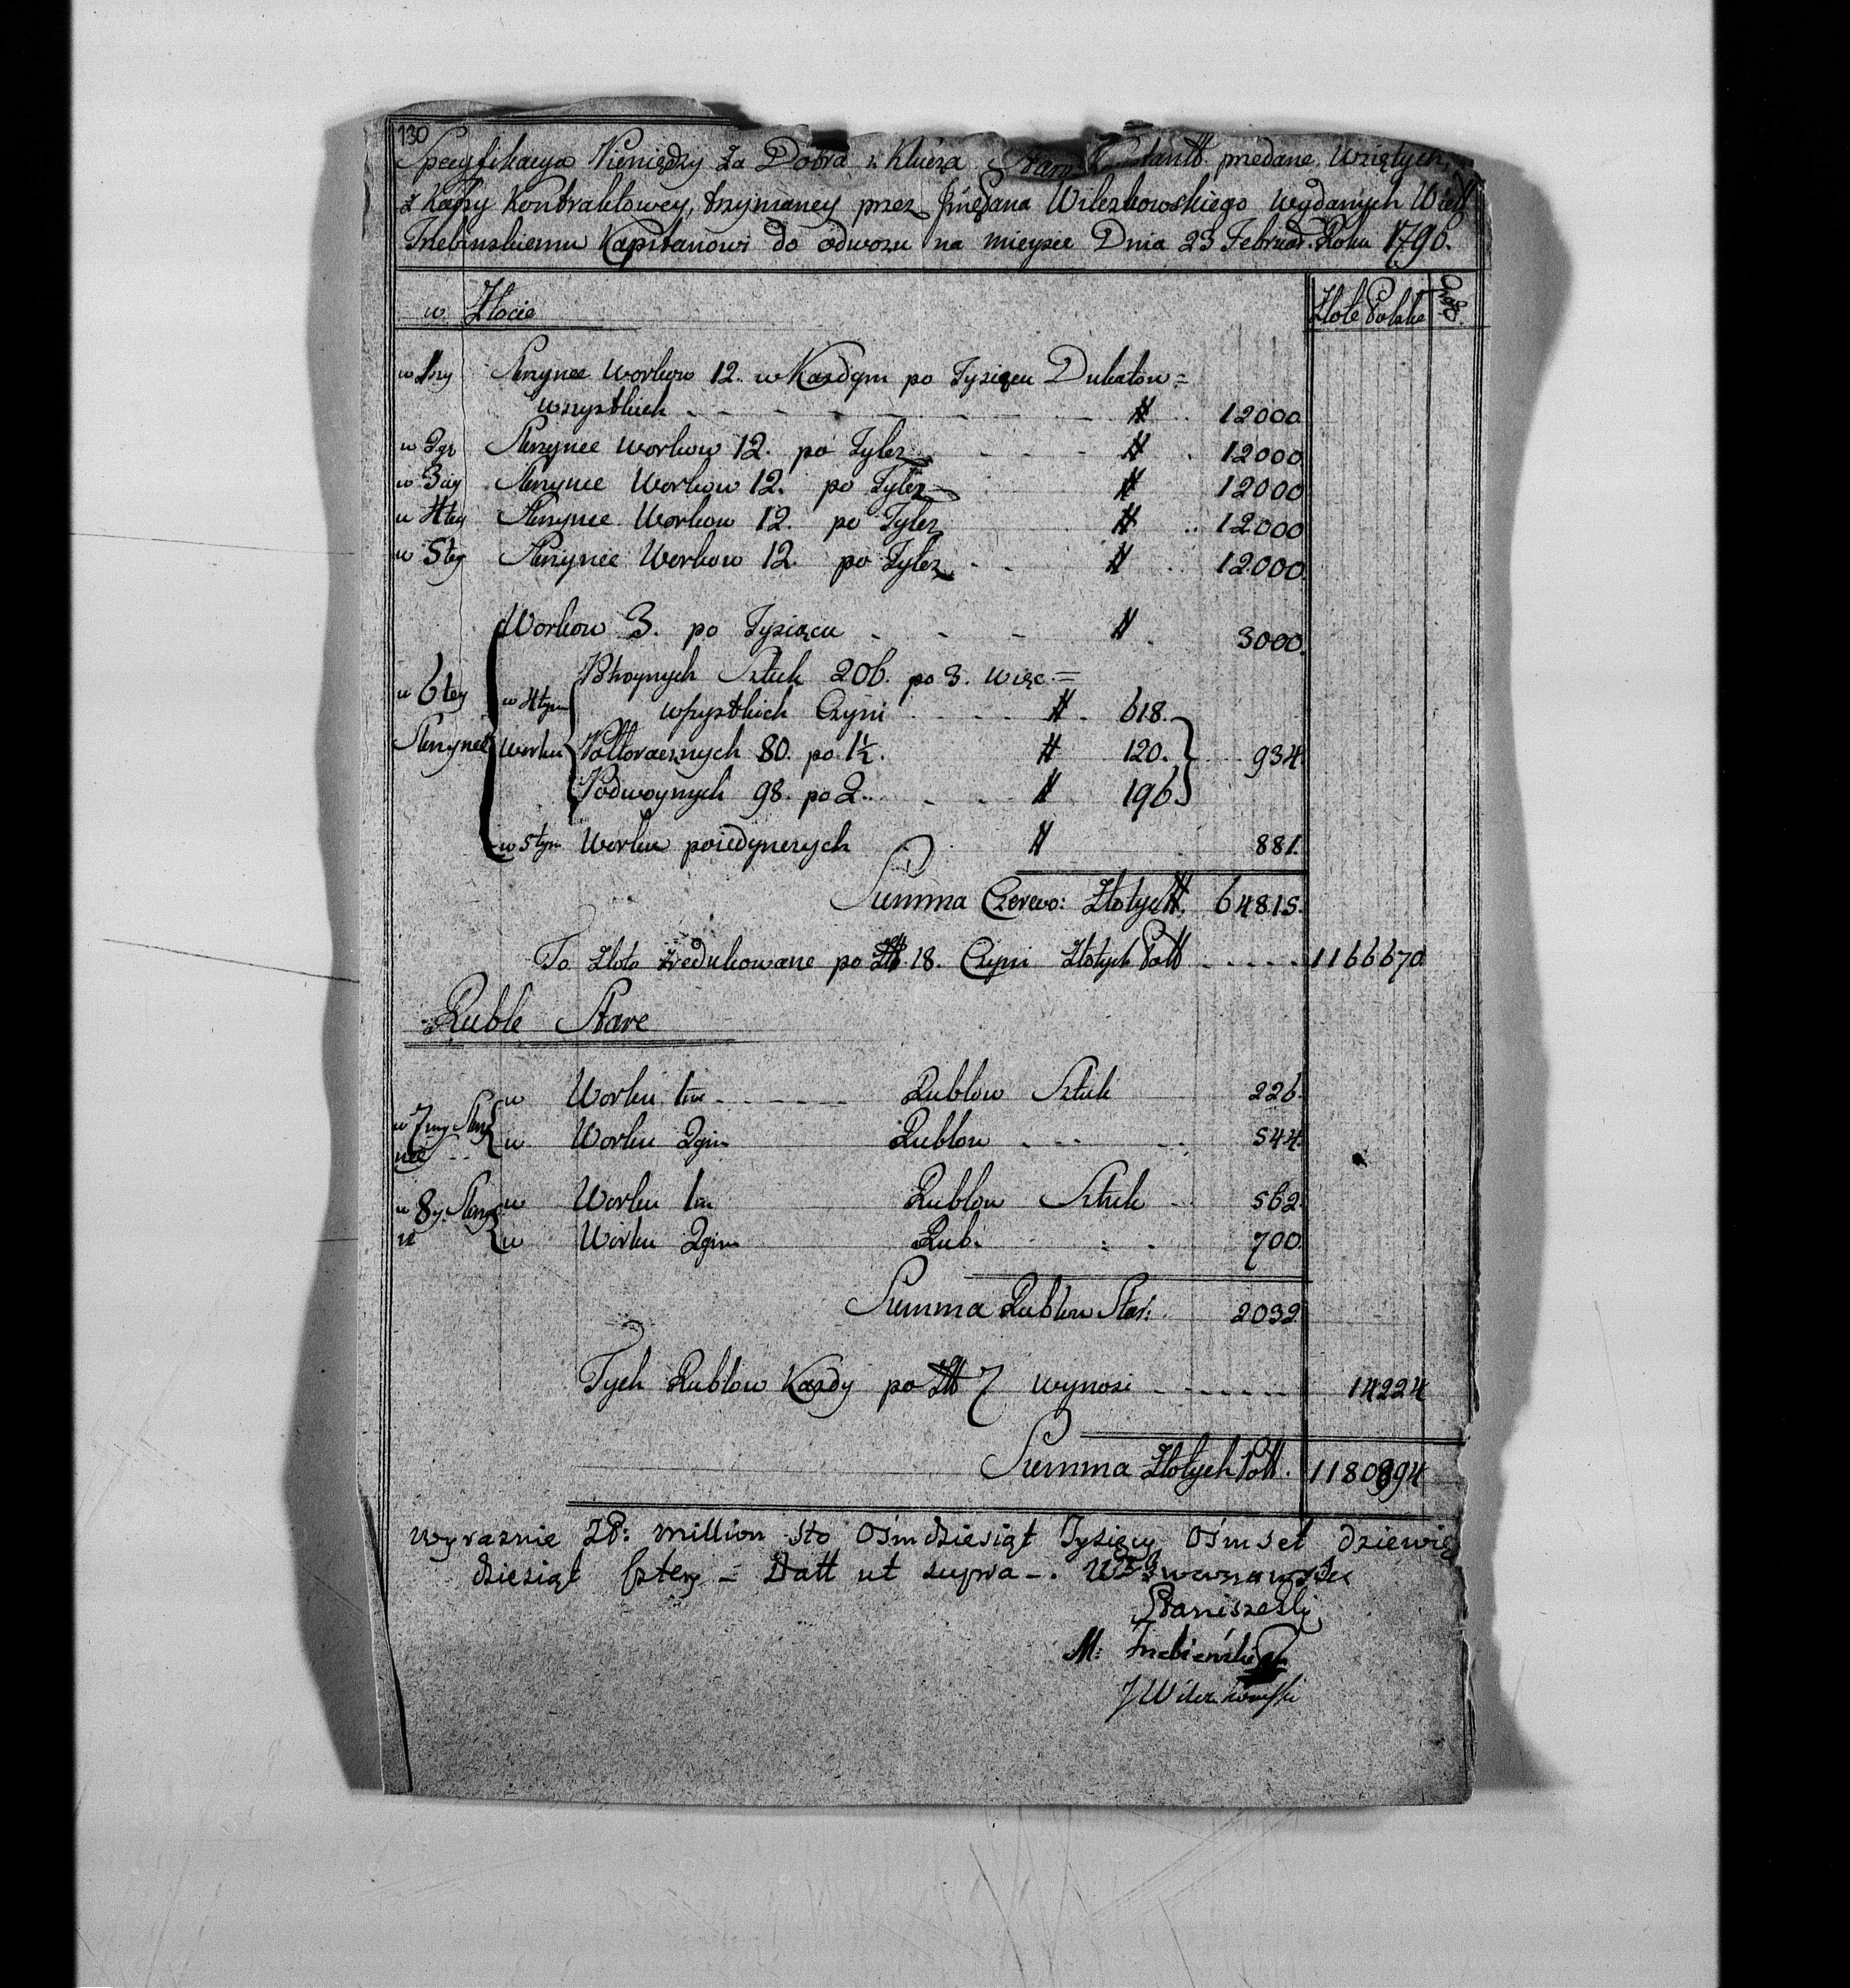 130
Specyfikacya Pieniędzy za Dobra z Klucza Staro Konstantt. przedane, Wziętych,
z Kassy Kontraktowey, trzymaney przez Jmć Pana Wilczkowskiego wydanych
Trzebinskiemu Kapitanowi do odwozu na mieysce Dnia 23 Februar. Roku 1790.
w Złocie Złote Polskie Grosz.
w 1szy Skrzynce Workow 12. w Kazdym po Tysiącu Dukatow =
wszystkich # 12000
w 2gi Skrzynce Workow 12. po Tylez # 12000
w 3ciy Skrzynce Workow 12. po Tylez # 12000
w 4tey Skrzynce Workow 12. po Tylez # 12000
w 5tey Skrzynce Workow 12. po Tylez # 12000
Workow 3. po Tysiącu # 3000.
w 6tey w 4tym Potroynych Sztuk 206. po 3. więc =
wszystkich Czyni # 618.
Skrzynce Worku Połtoracznych 80. po 1½. # 120. 934.
Podwoynych 98. po 2. # 196.
w 5tym Worku poiedynczych # 881.
Summa Czerwo: Złotych #. 64815.
To Złoto zredukowane po Złł 18. Czyni Złotych Poll 1166670
Ruble Stare
w Worku 1m Rublow Sztuk 226.
w 7mey Skrzynce w Worku 2gim Rublow 544.
w 8y. Skrzy w Worku 1m Rublow Sztuk 562.
ce w Worku 2gim Rub. 700.
Summa Rublow Star: 2032
Tych Rublow Kazdy po Złł 7 wynosi 14224
Summa Złotych Poll. 1180894
wyraznie ZP: million sto Ośmdziesiąt Tysięcy Ośmset dziewię
dziesiąt Cztery = Datt ut supra -.
Staniszewski
M: Trzebiński
J Wilczkowski